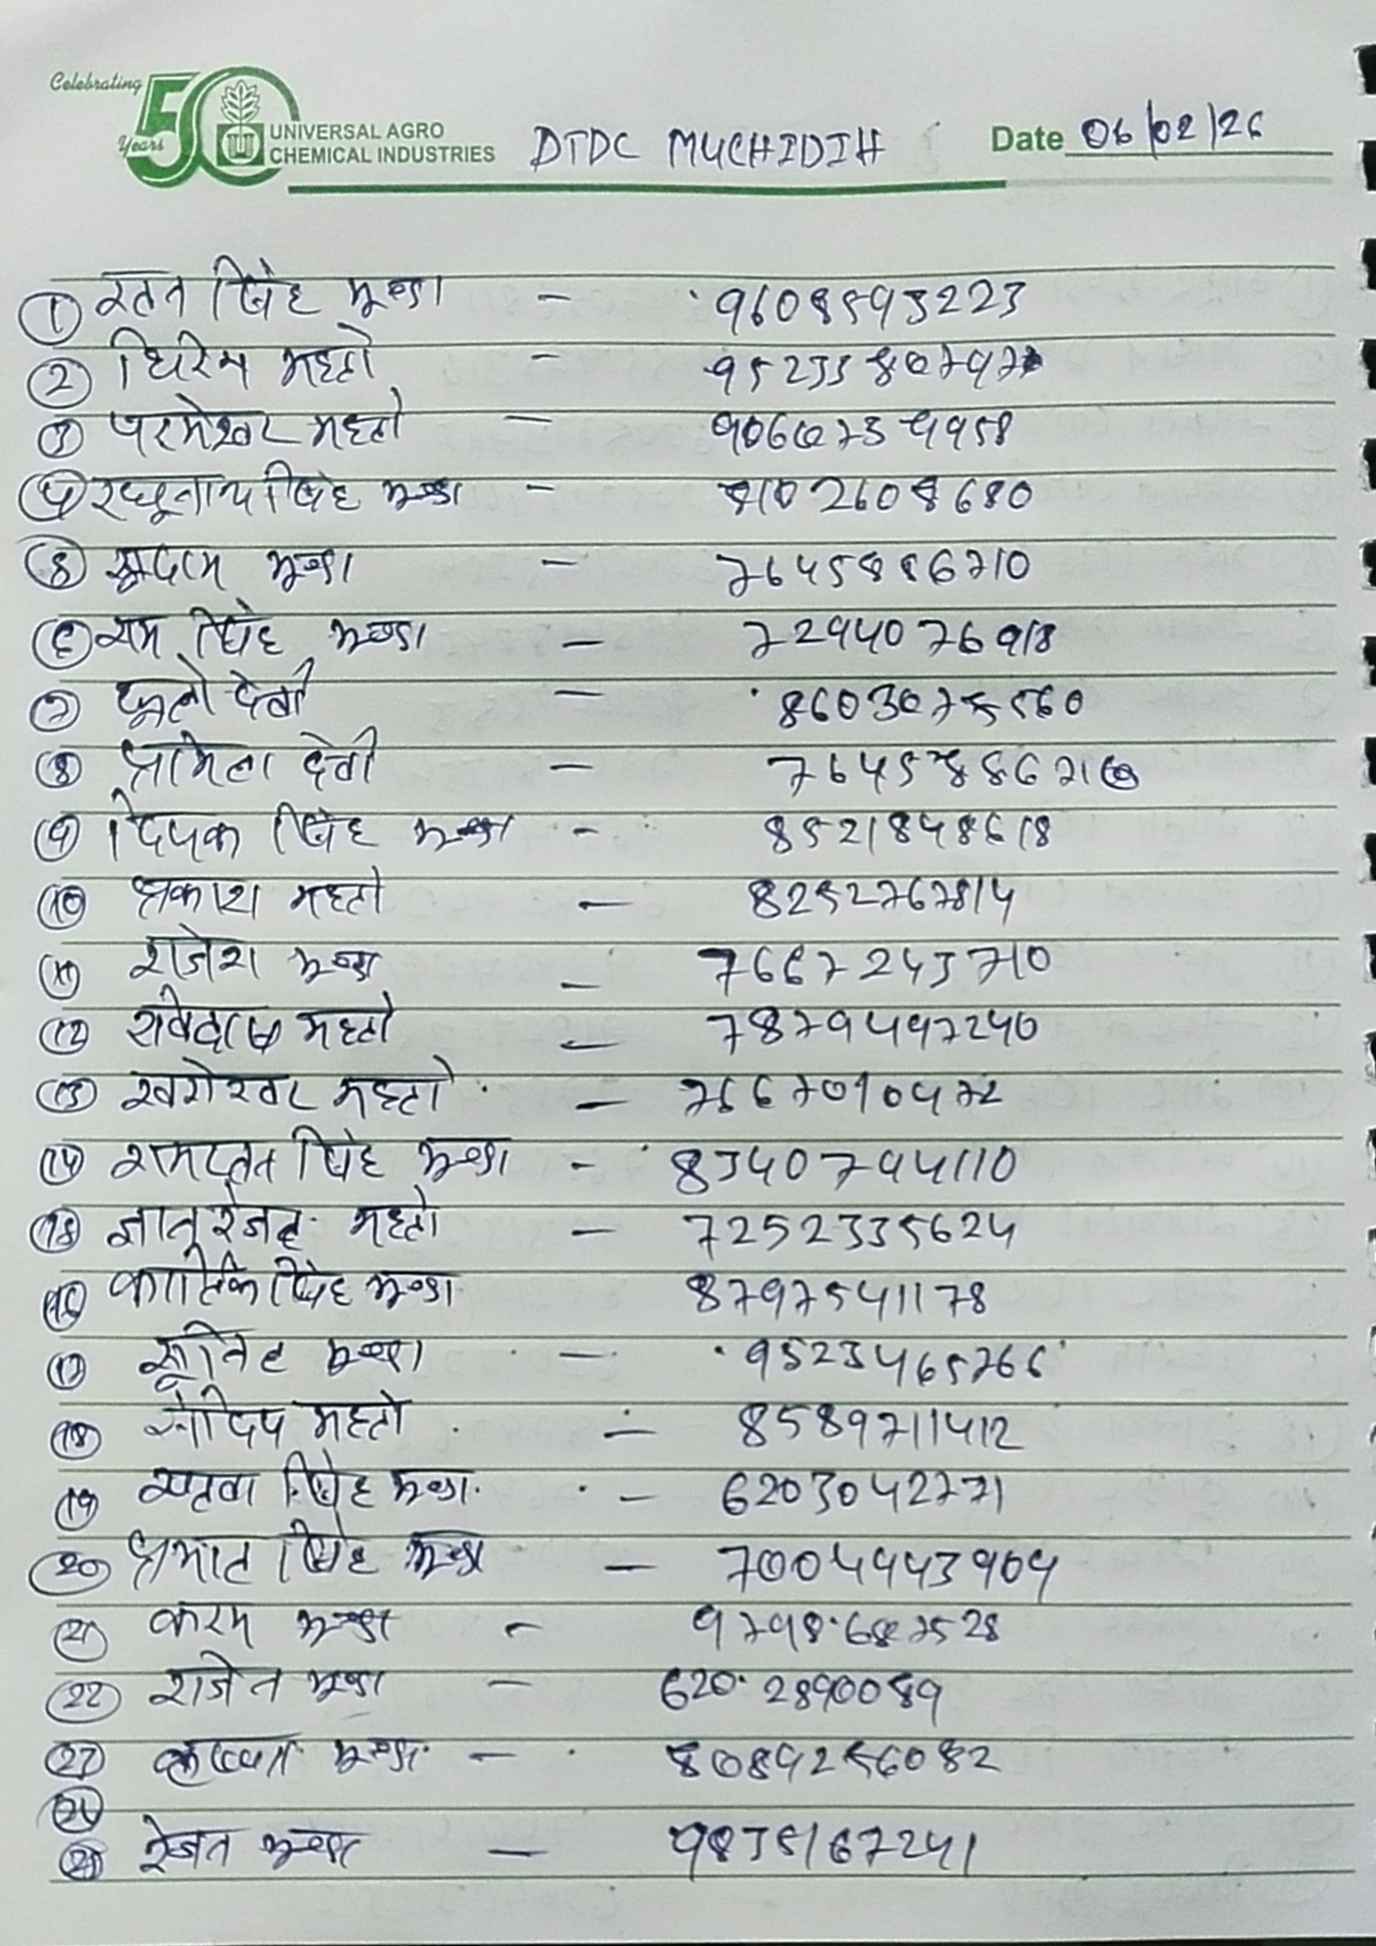 Celebrating
50
Years
UNIVERSAL AGRO
CHEMICAL INDUSTRIES
DTDC MUCHIDIH
Date 06/02/26
1 रतन सिंह मुण्डा - 9608593223
2 धिरेन महतो -
3 परमेश्वर महतो -
4 रघुनाथ सिंह मुण्डा - 8102608680
5 सुदाम मुण्डा - 7645886710
6 राम सिंह मुण्डा - 7294076918
7 फूलो देवी -
8 प्रमिला देवी -
9 दिपक सिंह मुण्डा - 8521848618
10 प्रकाश महतो - 8252767814
11 राजेश मुण्डा - 7667243710
12 महतो - 7879497240
13 खगेश्वर महतो - 7667010472
14 रामरतन सिंह मुण्डा - 8340794110
15 महतो - 7252335624
16 कार्तिक सिंह मुण्डा 8797541178
17 सुनित मुण्डा - 9523465766
18 संदिप महतो - 8589711412
19 सिंह मुण्डा - 6203042771
20 प्रभात सिंह मुण्डा - 7004943904
21 करम मुण्डा -
22 राजेन मुण्डा - 6202890089
23 मुण्डा - 8089256082
24
25 मुण्डा - 9835167241